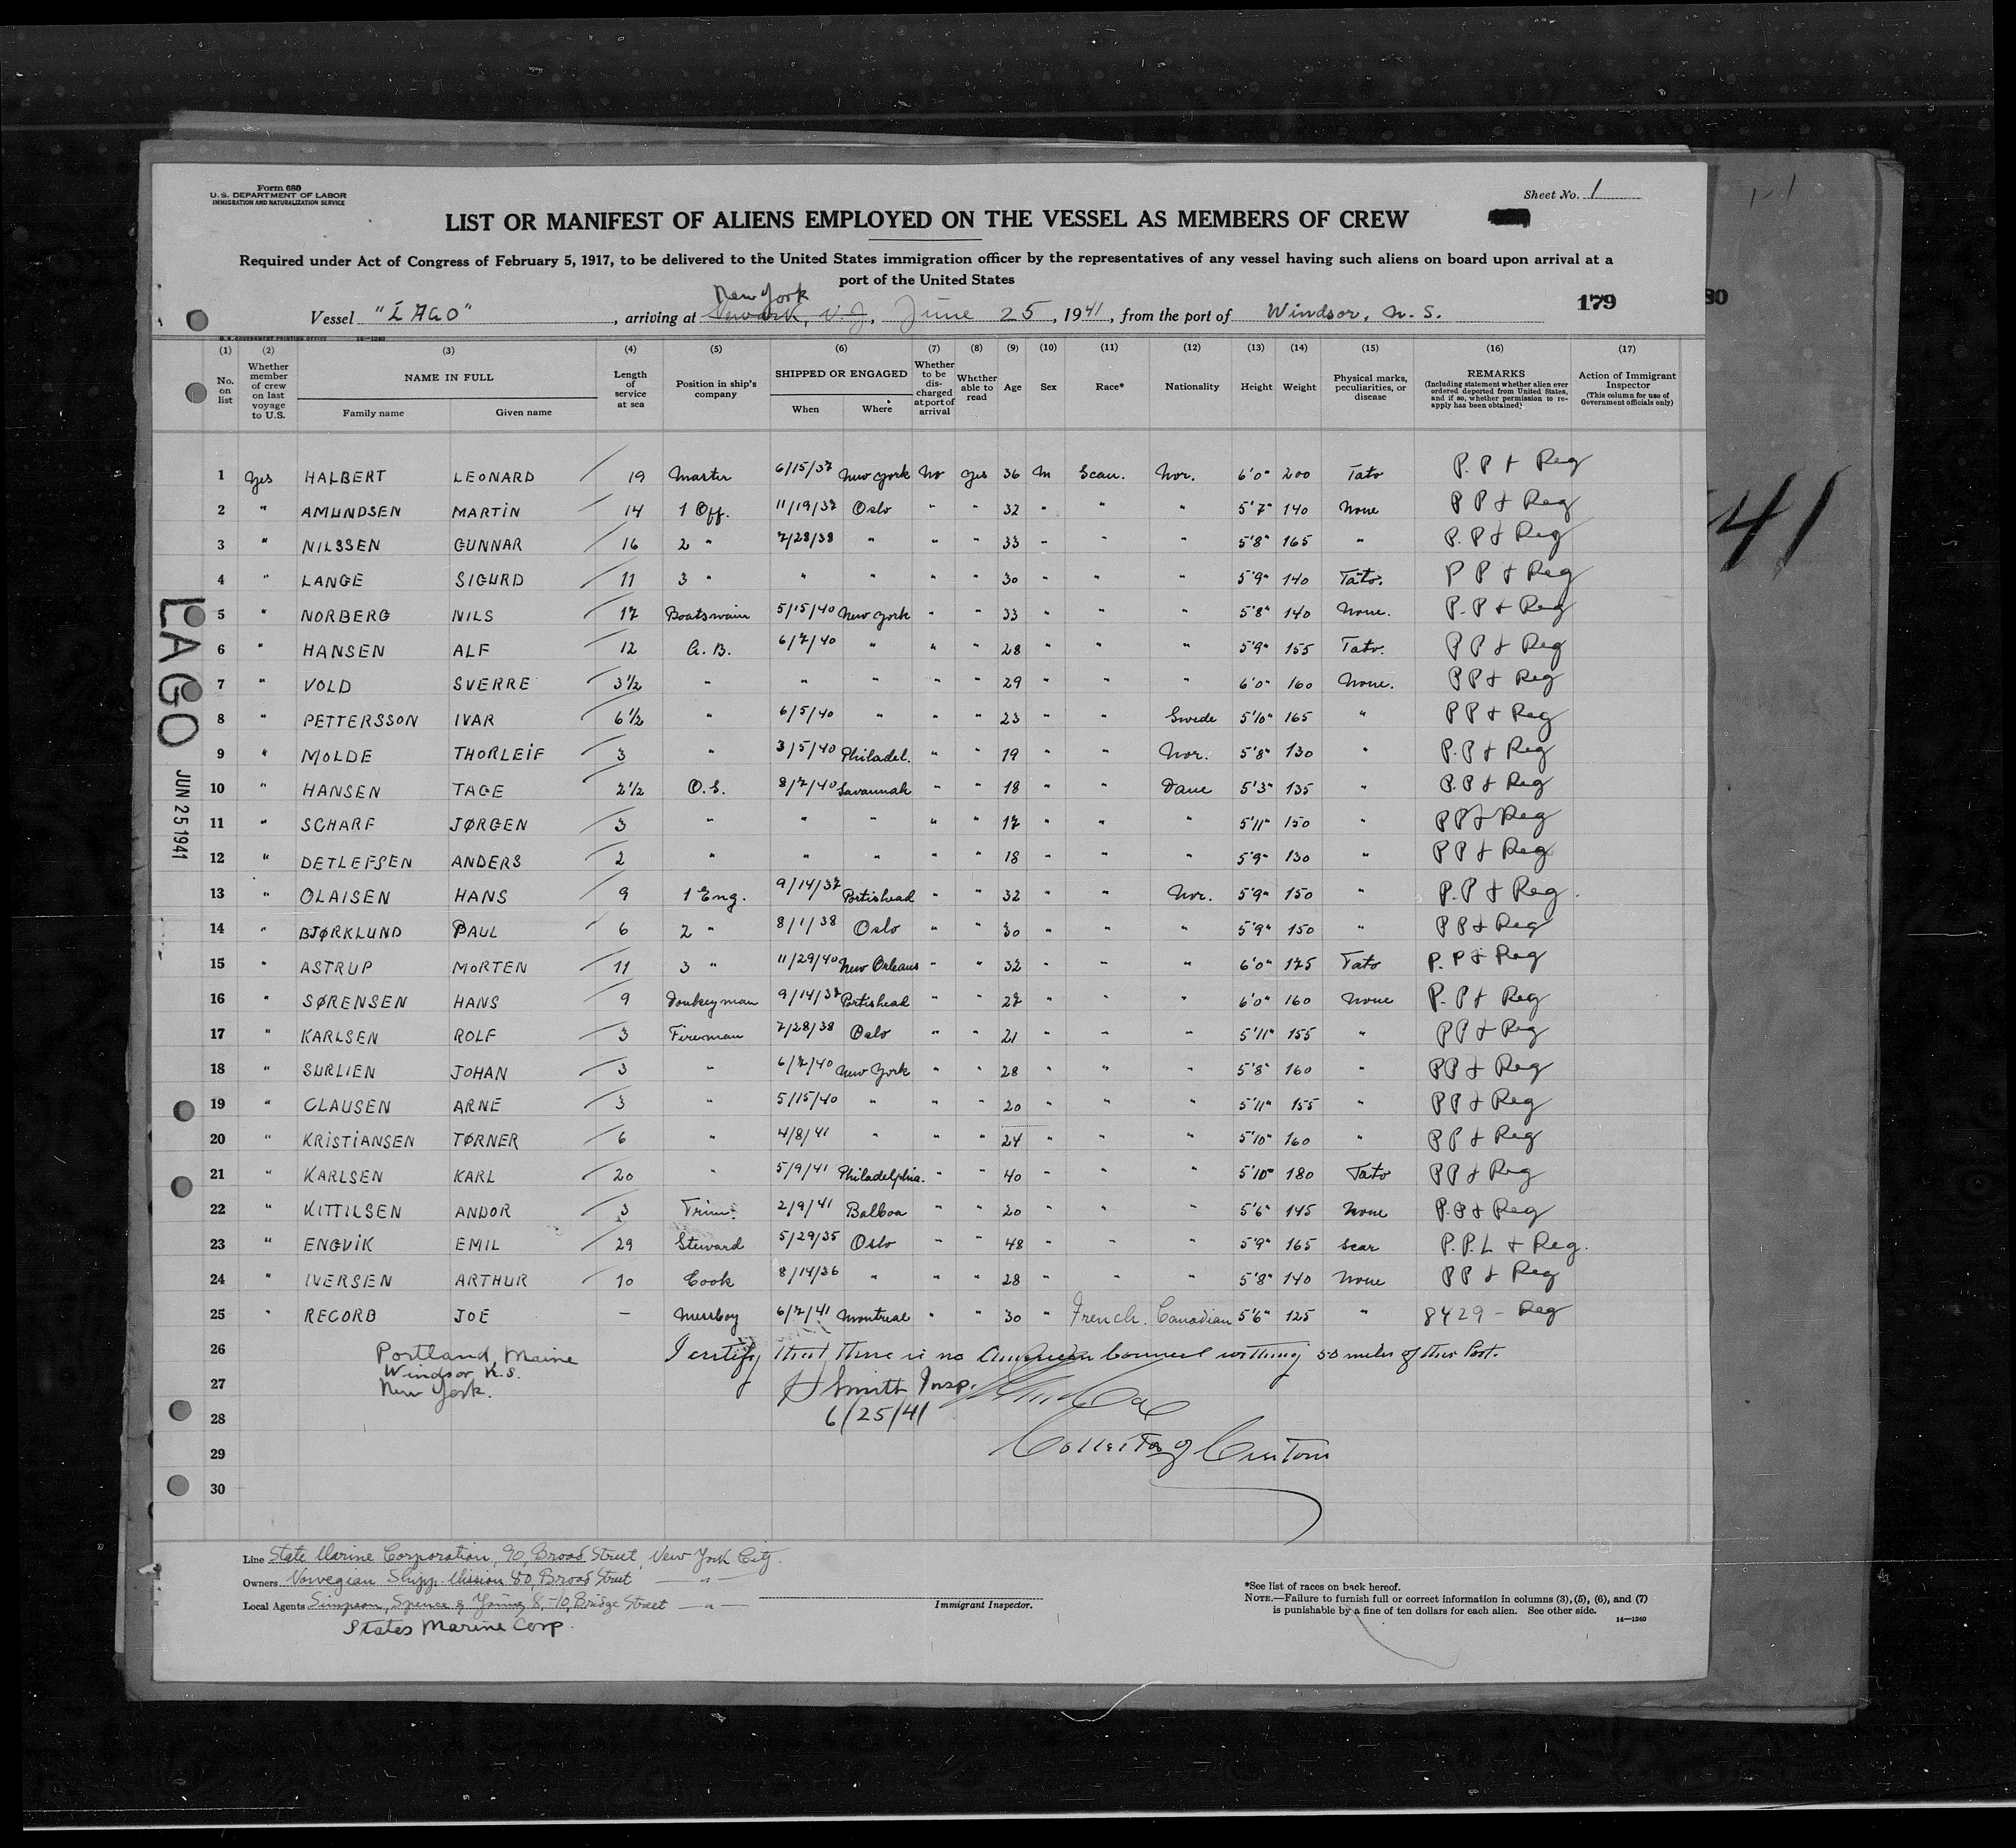 Form 680
U. S. DEPARTMENT OF LABOR
IMMIGRATION AND NATURALIZATION SERVICE
Sheet No. 1
LIST OR MANIFEST OF ALIENS EMPLOYED ON THE VESSEL AS MEMBERS OF CREW
Required under Act of Congress of February 5, 1917, to be delivered to the United States immigration officer by the representatives of any vessel having such aliens on board upon arrival at a
port of the United States
New York
Vessel "LAGO", arriving at Newark, N.J., June 25, 1941, from the port of Windsor, N.S.
179
80
U. S. GOVERNMENT PRINTING OFFICE 14—1240
(1) (2) (3) (4) (5) (6) (7) (8) (9) (10) (11) (12) (13) (14) (15) (16) (17)
No. on list
Whether member of crew on last voyage to U.S.
NAME IN FULL
Family name Given name
Length of service at sea
Position in ship's company
SHIPPED OR ENGAGED
When Where
Whether to be discharged at port of arrival
Whether able to read
Age
Sex
Race*
Nationality
Height
Weight
Physical marks, peculiarities, or disease
REMARKS
(Including statement whether alien ever ordered deported from United States, and if so, whether permission to reapply has been obtained)
Action of Immigrant Inspector
(This column for use of Government officials only)
1 Yes HALBERT LEONARD 19 Master 6/15/37 New York No Yes 36 M Scan. Nor. 6'0" 200 Tato P.P & Reg
2 " AMUNDSEN MARTIN 14 1 Off. 11/19/37 Oslo " " 32 " " " 5'7" 140 None PP & Reg
3 " NILSSEN GUNNAR 16 2 " 7/28/38 " " " 33 " " " 5'8" 165 " P.P & Reg
4 " LANGE SIGURD 11 3 " " " " " 30 " " " 5'9" 140 Tato. PP & Reg
5 " NORBERG NILS 17 Boatswain 5/15/40 New York " " 33 " " " 5'8" 140 None. P.P & Reg
6 " HANSEN ALF 12 A.B. 6/7/40 " " " 28 " " " 5'9" 155 Tato. PP & Reg
7 " VOLD SVERRE 3½ " " " " " 29 " " " 6'0" 160 None. PP & Reg
8 " PETTERSSON IVAR 6½ " 6/5/40 " " " 23 " " Swede 5'10" 165 " PP & Reg
9 " MOLDE THORLEIF 3 " 3/5/40 Philadel. " " 19 " " Nor. 5'8" 130 " P.P & Reg
10 " HANSEN TAGE 2½ O.S. 8/7/40 Savannah " " 18 " " Dane 5'3" 135 " P.P & Reg
11 " SCHARF JØRGEN 3 " " " " " 17 " " " 5'11" 150 " PP & Reg
12 " DETLEFSEN ANDERS 2 " " " " " 18 " " " 5'9" 130 " PP & Reg
13 " OLAISEN HANS 9 1 Eng. 9/14/37 Portishead " " 32 " " Nor. 5'9" 150 " P.P & Reg.
14 " BJØRKLUND PAUL 6 2 " 8/1/38 Oslo " " 30 " " " 5'9" 150 " PP & Reg
15 " ASTRUP MORTEN 11 3 " 11/29/40 New Orleans " " 32 " " " 6'0" 175 Tato P.P & Reg
16 " SØRENSEN HANS 9 Donkeyman 9/14/37 Portishead " " 27 " " " 6'0" 160 None P.P & Reg
17 " KARLSEN ROLF 3 Fireman 7/28/38 Oslo " " 21 " " " 5'11" 155 " PP & Reg
18 " SURLIEN JOHAN 3 " 6/7/40 New York " " 28 " " " 5'8" 160 " PP & Reg
19 " CLAUSEN ARNE 3 " 5/15/40 " " " 20 " " " 5'11" 155 " PP & Reg
20 " KRISTIANSEN TØRNER 6 " 4/8/41 " " " 24 " " " 5'10" 160 " PP & Reg
21 " KARLSEN KARL 20 " 5/9/41 Philadelphia. " " 40 " " " 5'10" 180 Tato PP & Reg
22 " KITTILSEN ANDOR 3 Trim. 2/9/41 Balboa " " 20 " " " 5'6" 145 None P.P & Reg
23 " ENGVIK EMIL 29 Steward 5/29/35 Oslo " " 48 " " " 5'9" 165 Scar P.P.L & Reg.
24 " IVERSEN ARTHUR 10 Cook 8/14/36 " " " 28 " " " 5'8" 140 None PP & Reg
25 " RECORB JOE — Messboy 6/7/41 Montreal " " 30 " French. Canadian 5'6" 125 " 8429 - Reg
26 Portland, Maine I certify that there is no American Counsel withing 50 miles of this Port.
27 Windsor N.S.
New York. Smith Insp.
28 6/25/41
29 Collector of Customs
30
LAGO
JUN 25 1941
41
Line State Marine Corporation, 90, Broad Street, New York City.
Owners Norwegian Shipp. Mission 80, Broad Street — " —
Local Agents Simpson, Spence & Young, 8,-10, Bridge Street — " —
States Marine Corp.
Immigrant Inspector.
*See list of races on back hereof.
NOTE.—Failure to furnish full or correct information in columns (3), (5), (6), and (7)
is punishable by a fine of ten dollars for each alien. See other side.
14—1240